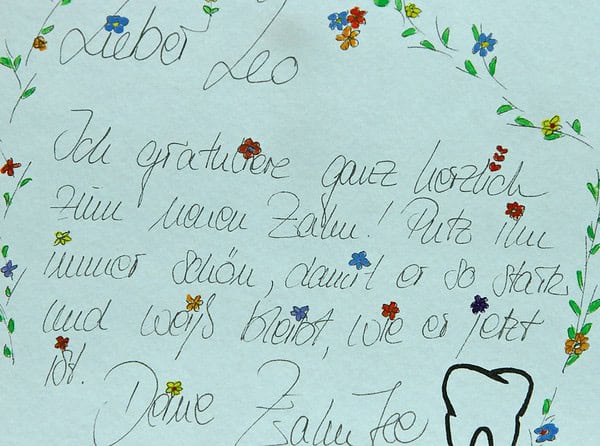 Lieber Leo
Ich gratuliere ganz herzlich
zum neuen Zahn! Putz ihn
immer schön, damit er so stark
und weiß bleibt, wie er jetzt
ist.
Deine Zahnfee